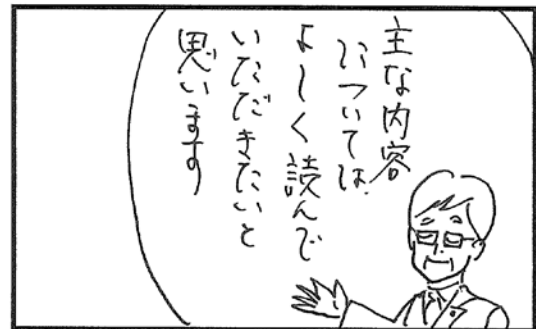 主な内容
については
よーく読んで
いただきたいと
思います